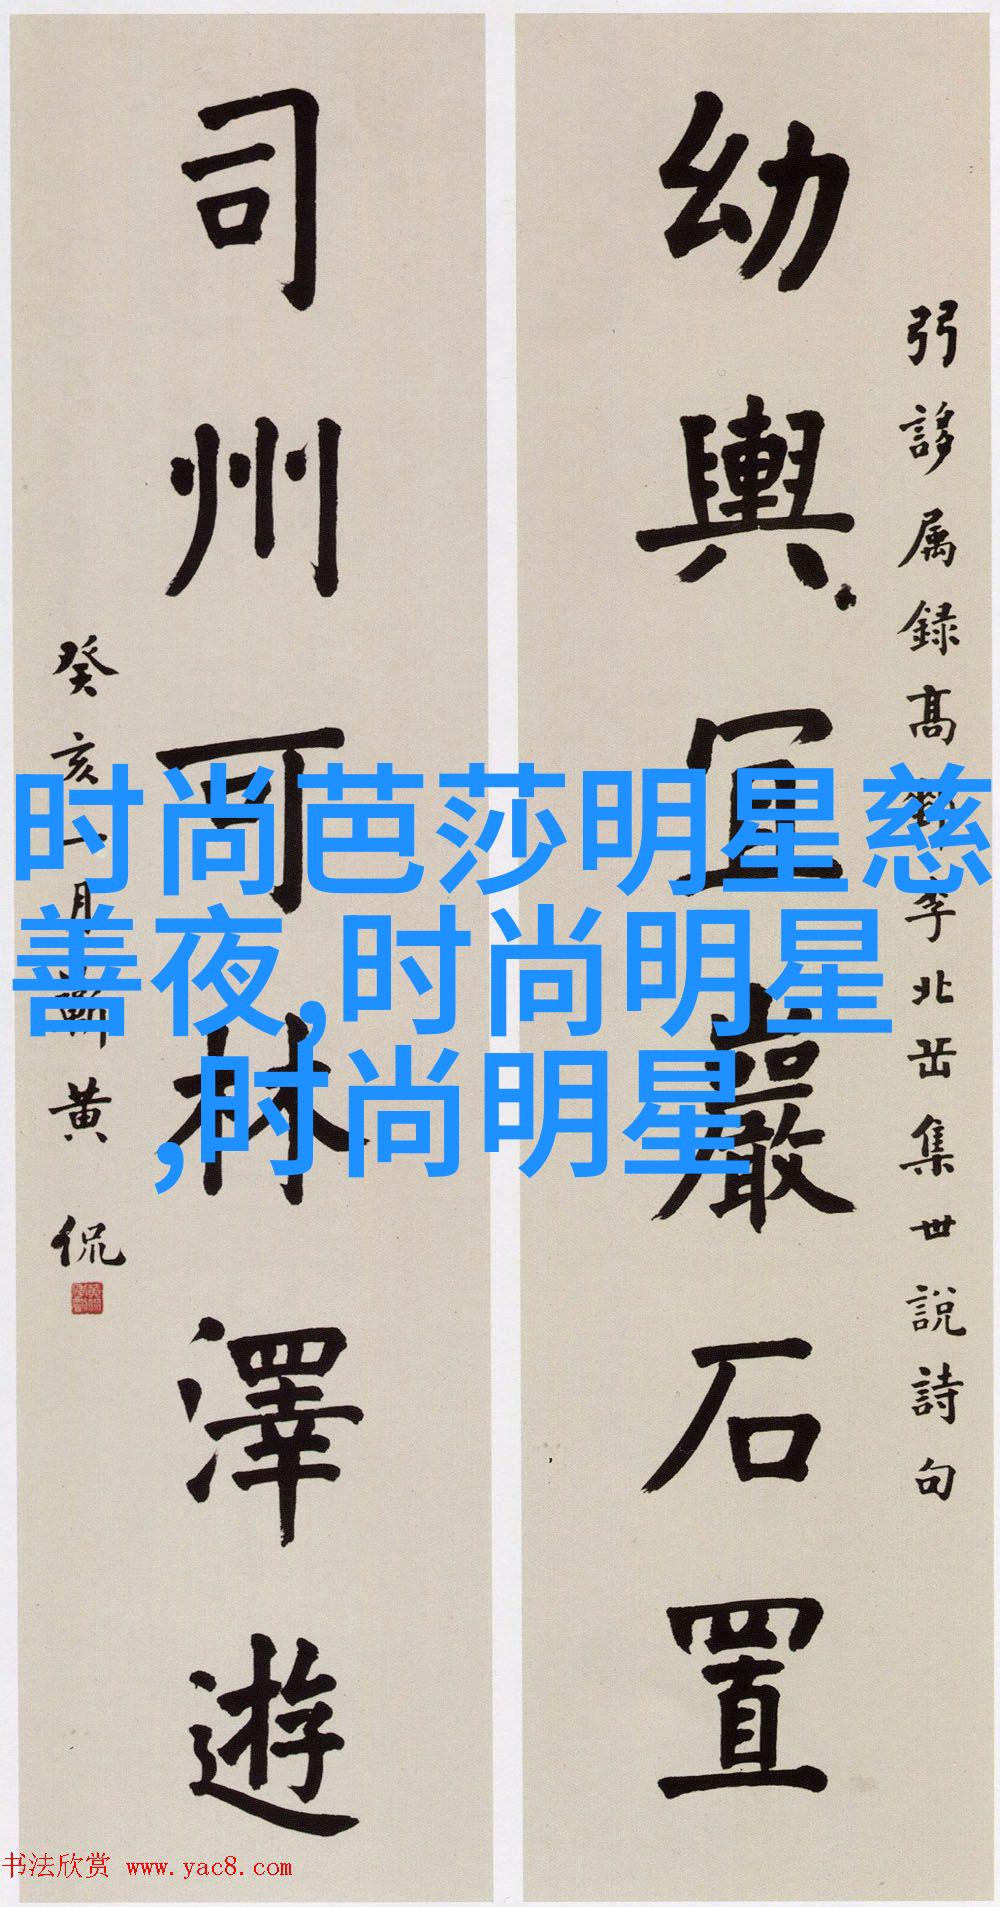 弜誃属録高
李北岳集世說詩句
幼輿宜巖石置
司州可林澤遊
癸亥
月
黄侃
时尚芭莎明星慈
善夜,时尚明星
,时尚明星
书法欣赏 www.yac8.com